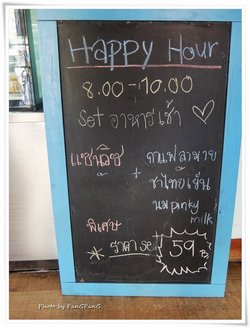 Happy Hour
8.00-10.00
Set อาหารเช้า
แซนวิช + กาแฟ
ชาไทยเย็น
นมpinky
milk
พิเศษ
* ราคา Set 59 ฿
Photo by PanGPanG